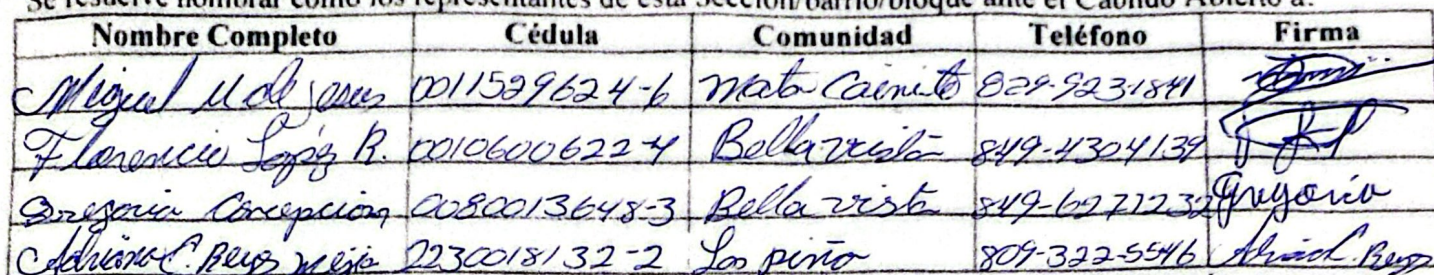 Se resuelve nombrar como los representantes de esta Sección/barrio/bloque ante el Cabildo Abierto a:
Nombre Completo Cédula Comunidad Teléfono Firma
Miguel M de jesus 0011529624-6 mata Cainito 829-923-1841
Florencio López R. 0010600622-4 Bella vista 849-4304139
Gregoria Concepcion 0080013648-3 Bella vista 849-6271232 Gregoria
Adriana C. Reyes mejia 2230018132-2 Los pino 809-322-5546 C. Reyes